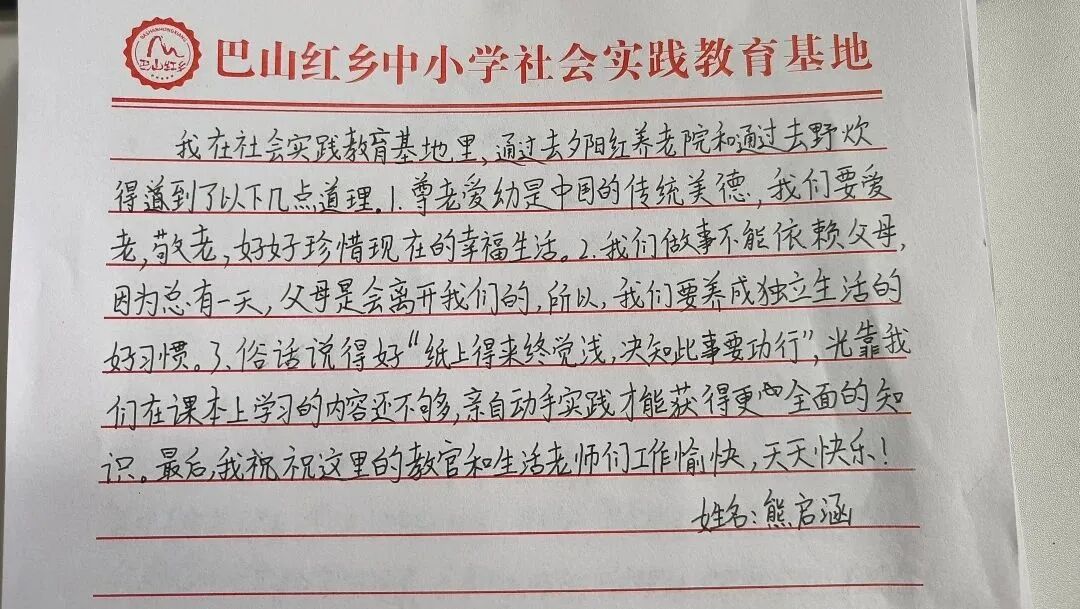 BASHANHONGXIANG
巴山红乡
巴山红乡中小学社会实践教育基地
我在社会实践教育基地里,通过去夕阳红养老院和通过去野炊
得道到了以下几点道理。1.尊老爱幼是中国的传统美德,我们要爱
老,敬老,好好珍惜现在的幸福生活。2.我们做事不能依赖父母,
因为总有一天,父母是会离开我们的,所以,我们要养成独立生活的
好习惯。3、俗话说得好“纸上得来终觉浅,决知此事要功行”,光靠我
们在课本上学习的内容还不够,亲自动手实践才能获得更全面的知
识。最后,我祝祝这里的教官和生活老师们工作愉快,天天快乐!
姓名:熊启涵